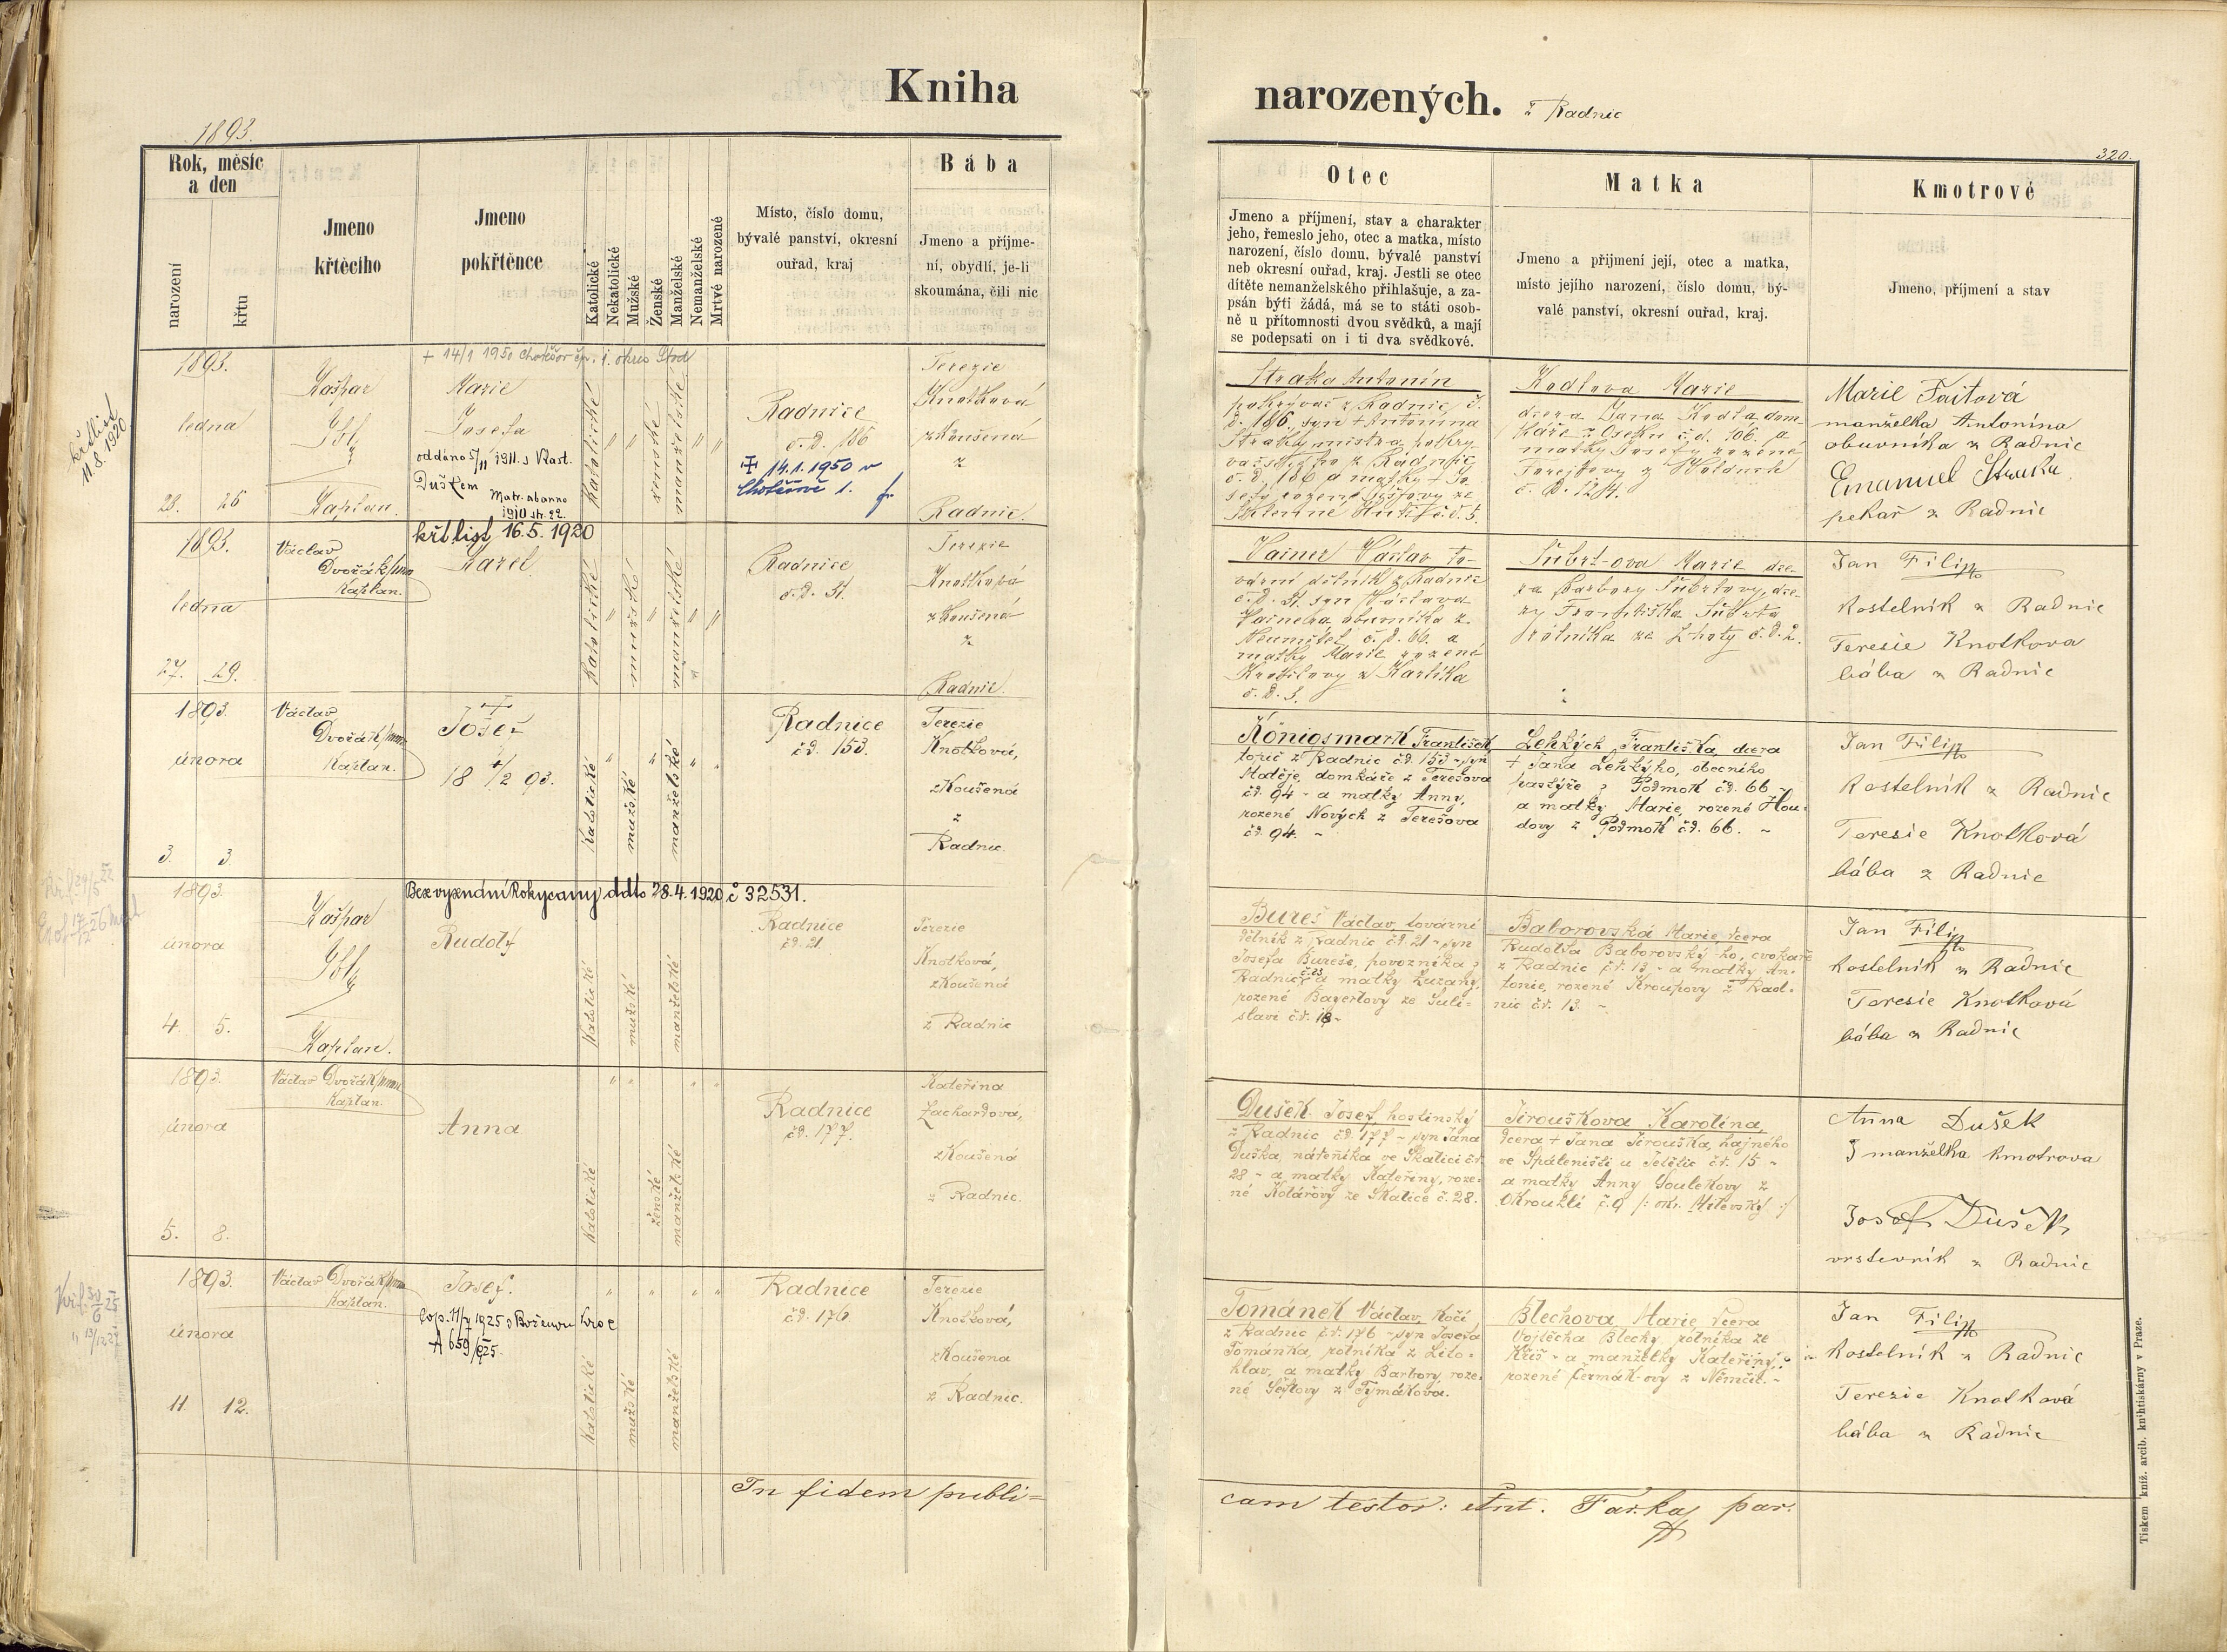 Kniha
narozených. z Radnic
1893.
320.
Rok, měsíc
a den
narození
křtu
Jmeno
křtěcího
Jmeno
pokřtěnce
Katolické
Nekatolické
Mužské
Ženské
Manželské
Nemanželské
Mrtvé narozené
Místo, číslo domu,
bývalé panství, okresní
ouřad, kraj
Bába
Jmeno a příjme-
ní, obydlí, je-li
skoumána, čili nic
Otec
Jmeno a příjmení, stav a charakter
jeho, řemeslo jeho, otec a matka, místo
narození, číslo domu, bývalé panství
neb okresní ouřad, kraj. Jestli se otec
dítěte nemanželského přihlašuje, a za-
psán býti žádá, má se to státi osob-
ně u přítomnosti dvou svědků, a mají
se podepsati on i ti dva svědkové.
Matka
Jmeno a přijmení její, otec a matka,
místo jejího narození, číslo domu, bý-
valé panství, okresní ouřad, kraj.
Kmotrové
Jmeno, příjmení a stav
křtlist
11.8.1920
1893.
ledna
28. 26
Kašpar
Kaplan.
+ 14/1 1950 Chotěšov čp. 1. okres Stod
Marie
Josefa
oddána 5/11 1911 s Rast.
Duškem
Matr. abanno
1910 str. 22.
katolické
ženské
manželské
Radnice
č.d. 186
14.1.1950 v
Chotěšově 1.
Terezie
Knotková
zkoušená
z
Radnic.
Straka Antonín
pokrývač z Radnic, č.
d. 186, syn + Antonína
Straky mistra pokrý-
vačského z Radnic
č.d. 186 a matky + Jo-
Kodlova Marie
dcera Jana Kodla, dom-
káře z Oseku č.d. 106. a
matky Josefy rozené
č.d. 124.
Marie Faitová
manželka Antonína
obuvníka z Radnic
Emanuel Straka
pekař z Radnic
1893.
ledna
27. 29.
Václav
Dvořák
Kaplan.
křtlist 16.5.1920
Karel
katolické
mužské
manželské
Radnice
č.d. 31.
Terezie
Knotková
zkoušená
z
Radnic.
Vainer Václav to-
vární dělník z Radnic
č.d. 31. syn Václava
Vainera obuvníka z
Neumětel č.d. 66. a
matky Marie rozené
z Karlíka
č.d. 3.
Šubrt-ova Marie dce-
ra Barbory Šubrtovy, dce-
ry Františka Šubrta
rolníka ze Lhoty č.d. 2.
Jan Filip
kostelník z Radnic
Teresie Knotkova
bába z Radnic
1893.
února
3. 3.
Václav
Dvořák
Kaplan.
Josef
18 4/2 93.
katolické
mužské
manželské
Radnice
čd. 153.
Terezie
Knotková,
zkoušená
z
Radnic.
Königsmark František,
topič z Radnic čd. 153 - syn
Matěje, domkáře z Terešova
čd. 94 - a matky Anny,
rozené Nových z Terešova
čd. 94. -
Lehkých Františka, dcera
+ Jana Lehkýho, obecního
pastýře z Podmok čd. 66 -
a matky Marie, rozené Hou-
dovy z Podmok čd. 66. -
Jan Filip
kostelník z Radnic
Teresie Knotková
bába z Radnic
1893.
února
4. 5.
Kašpar
Kaplan.
Bez vyznání Rokycany ddto 28.4.1920, č 32531.
Rudolf
katolické
mužské
manželské
Radnice
čd. 21.
Terezie
Knotková,
zkoušená
z Radnic
Bureš Václav, tovární
dělník z Radnic čd. 21 - syn
Josefa Bureše, povozníka z
Radnic č. 23 a matky Zuzany,
rozené Bayerlovy ze Suli-
slavi čd. 18 -
Baborovská Marie, dcera
Rudolfa Baborovský-ho, cvokaře
z Radnic čd. 13 - a matky An-
tonie, rozené Kroupovy z Rad-
nic čd. 13. -
Jan Filip
kostelník z Radnic
Teresie Knotková
bába z Radnic
1893.
února
5. 8.
Václav Dvořák
Kaplan.
Anna
katolické
ženské
manželské
Radnice
čd. 177.
Kateřina
Zachardová,
zkoušená
z Radnic.
Dušek Josef, hostinský
z Radnic čd. 177 - syn Jana
Duška, nádeníka ve Skalici čd.
28 - a matky Kateřiny, roze-
né Kolářovy ze Skalice č. 28.
Jirouškova Karolína,
dcera + Jana Jirouška, hajného
ve Spáleništi u Jetětic čd. 15 -
a matky Anny Soulekovy z
Okrouhlí č. 9 /: okr. Milevský :/
Anna Dušek
manželka kmotrova
Josef Dušek
vrstevník z Radnic
1893.
února
11. 12.
Václav Dvořák
Kaplan.
Josef.
cop. 11/7 1925 s Boženou
A 659/925.
katolické
mužské
manželské
Radnice
čd. 176.
Terezie
Knotková,
zkoušená
z Radnic.
Tománek Václav, kočí
z Radnic čd. 176 - syn Josefa
Tománka, rolníka z Lito-
hlav, a matky Barbory, roze-
né Šejtovy z Tymákova.
Blechova Marie, dcera
Vojtěcha Blechy, rolníka ze
Kříš - a manželky Kateřiny,
rozené Čermák-ovy z Němčic. -
Jan Filip
kostelník z Radnic
Terezie Knotková
bába z Radnic
In fidem publi=
cam testor: Ant. Farka, par.
Tiskem kníž. arcib. knihtiskárny v Praze.